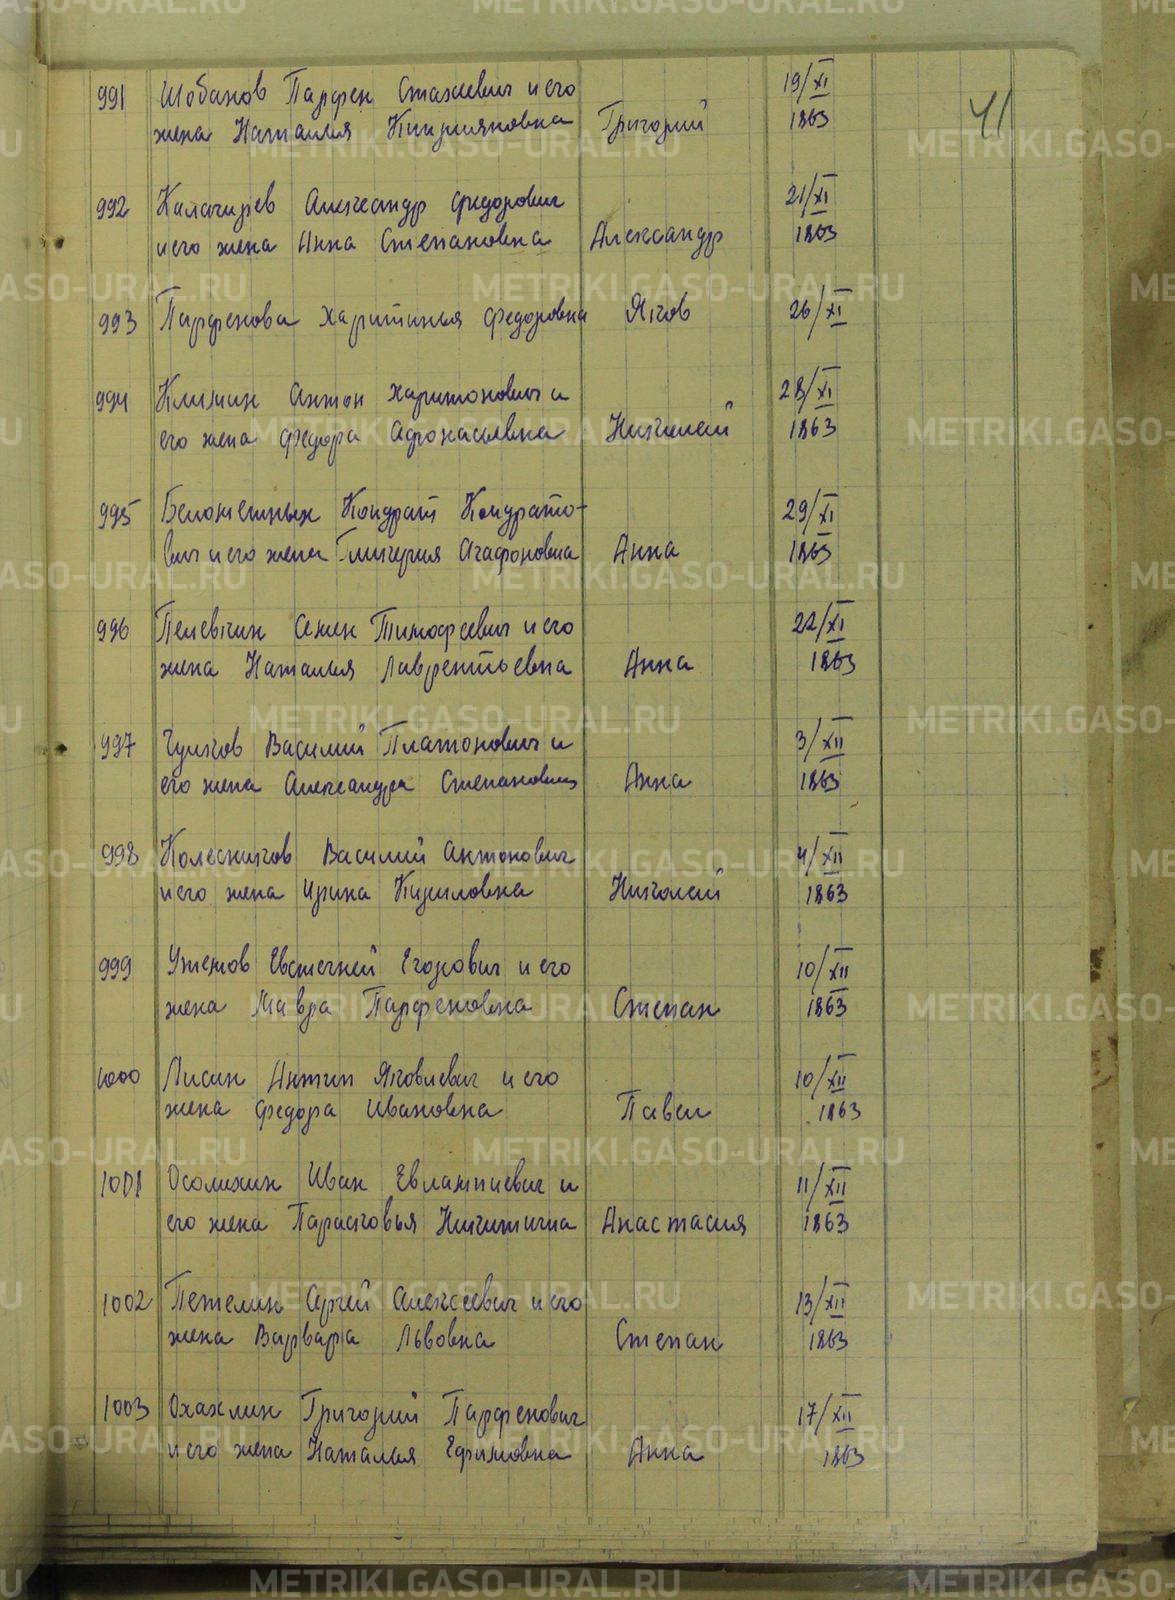 METRIKI.GASO-URAL.RU
41
991 Шобанов Парфен Стахиевич и его 19/XI
жена Наталья Киприяновна Григорий 1863
992 Калачирев Александр Федорович 21/XI
и его жена Анна Степановна Александр 1863
993 Парфенова Харитинья Федоровна Яков 26/XI
994 Климин Антон Харитонович и 28/XI
его жена Федора Афонасьевна Николай 1863
995 Белометных Кондрат Кондрато- 29/XI
вич и его жена Гликерия Агафоновна Анна 1863
996 Пелевкин Семен Тимофеевич и его 22/XI
жена Наталья Лаврентьевна Анна 1863
997 Гуляков Василий Платонович и 3/XII
его жена Александра Степановна Анна 1863
998 Колесников Василий Антонович 4/XII
и его жена Ирина Кириловна Николай 1863
999 Утемов Евстегней Егорович и его 10/XII
жена Мавра Парфеновна Степан 1863
1000 Лисин Антип Яковлевич и его 10/XII
жена Федора Ивановна Павел 1863
1001 Осолихин Иван Евлампиевич и 11/XII
его жена Парасковья Никитична Анастасия 1863
1002 Петелин Сергей Алексеевич и его 13/XII
жена Варвара Львовна Степан 1863
1003 Охахлин Григорий Парфенович 17/XII
и его жена Наталья Ефимовна Анна 1863